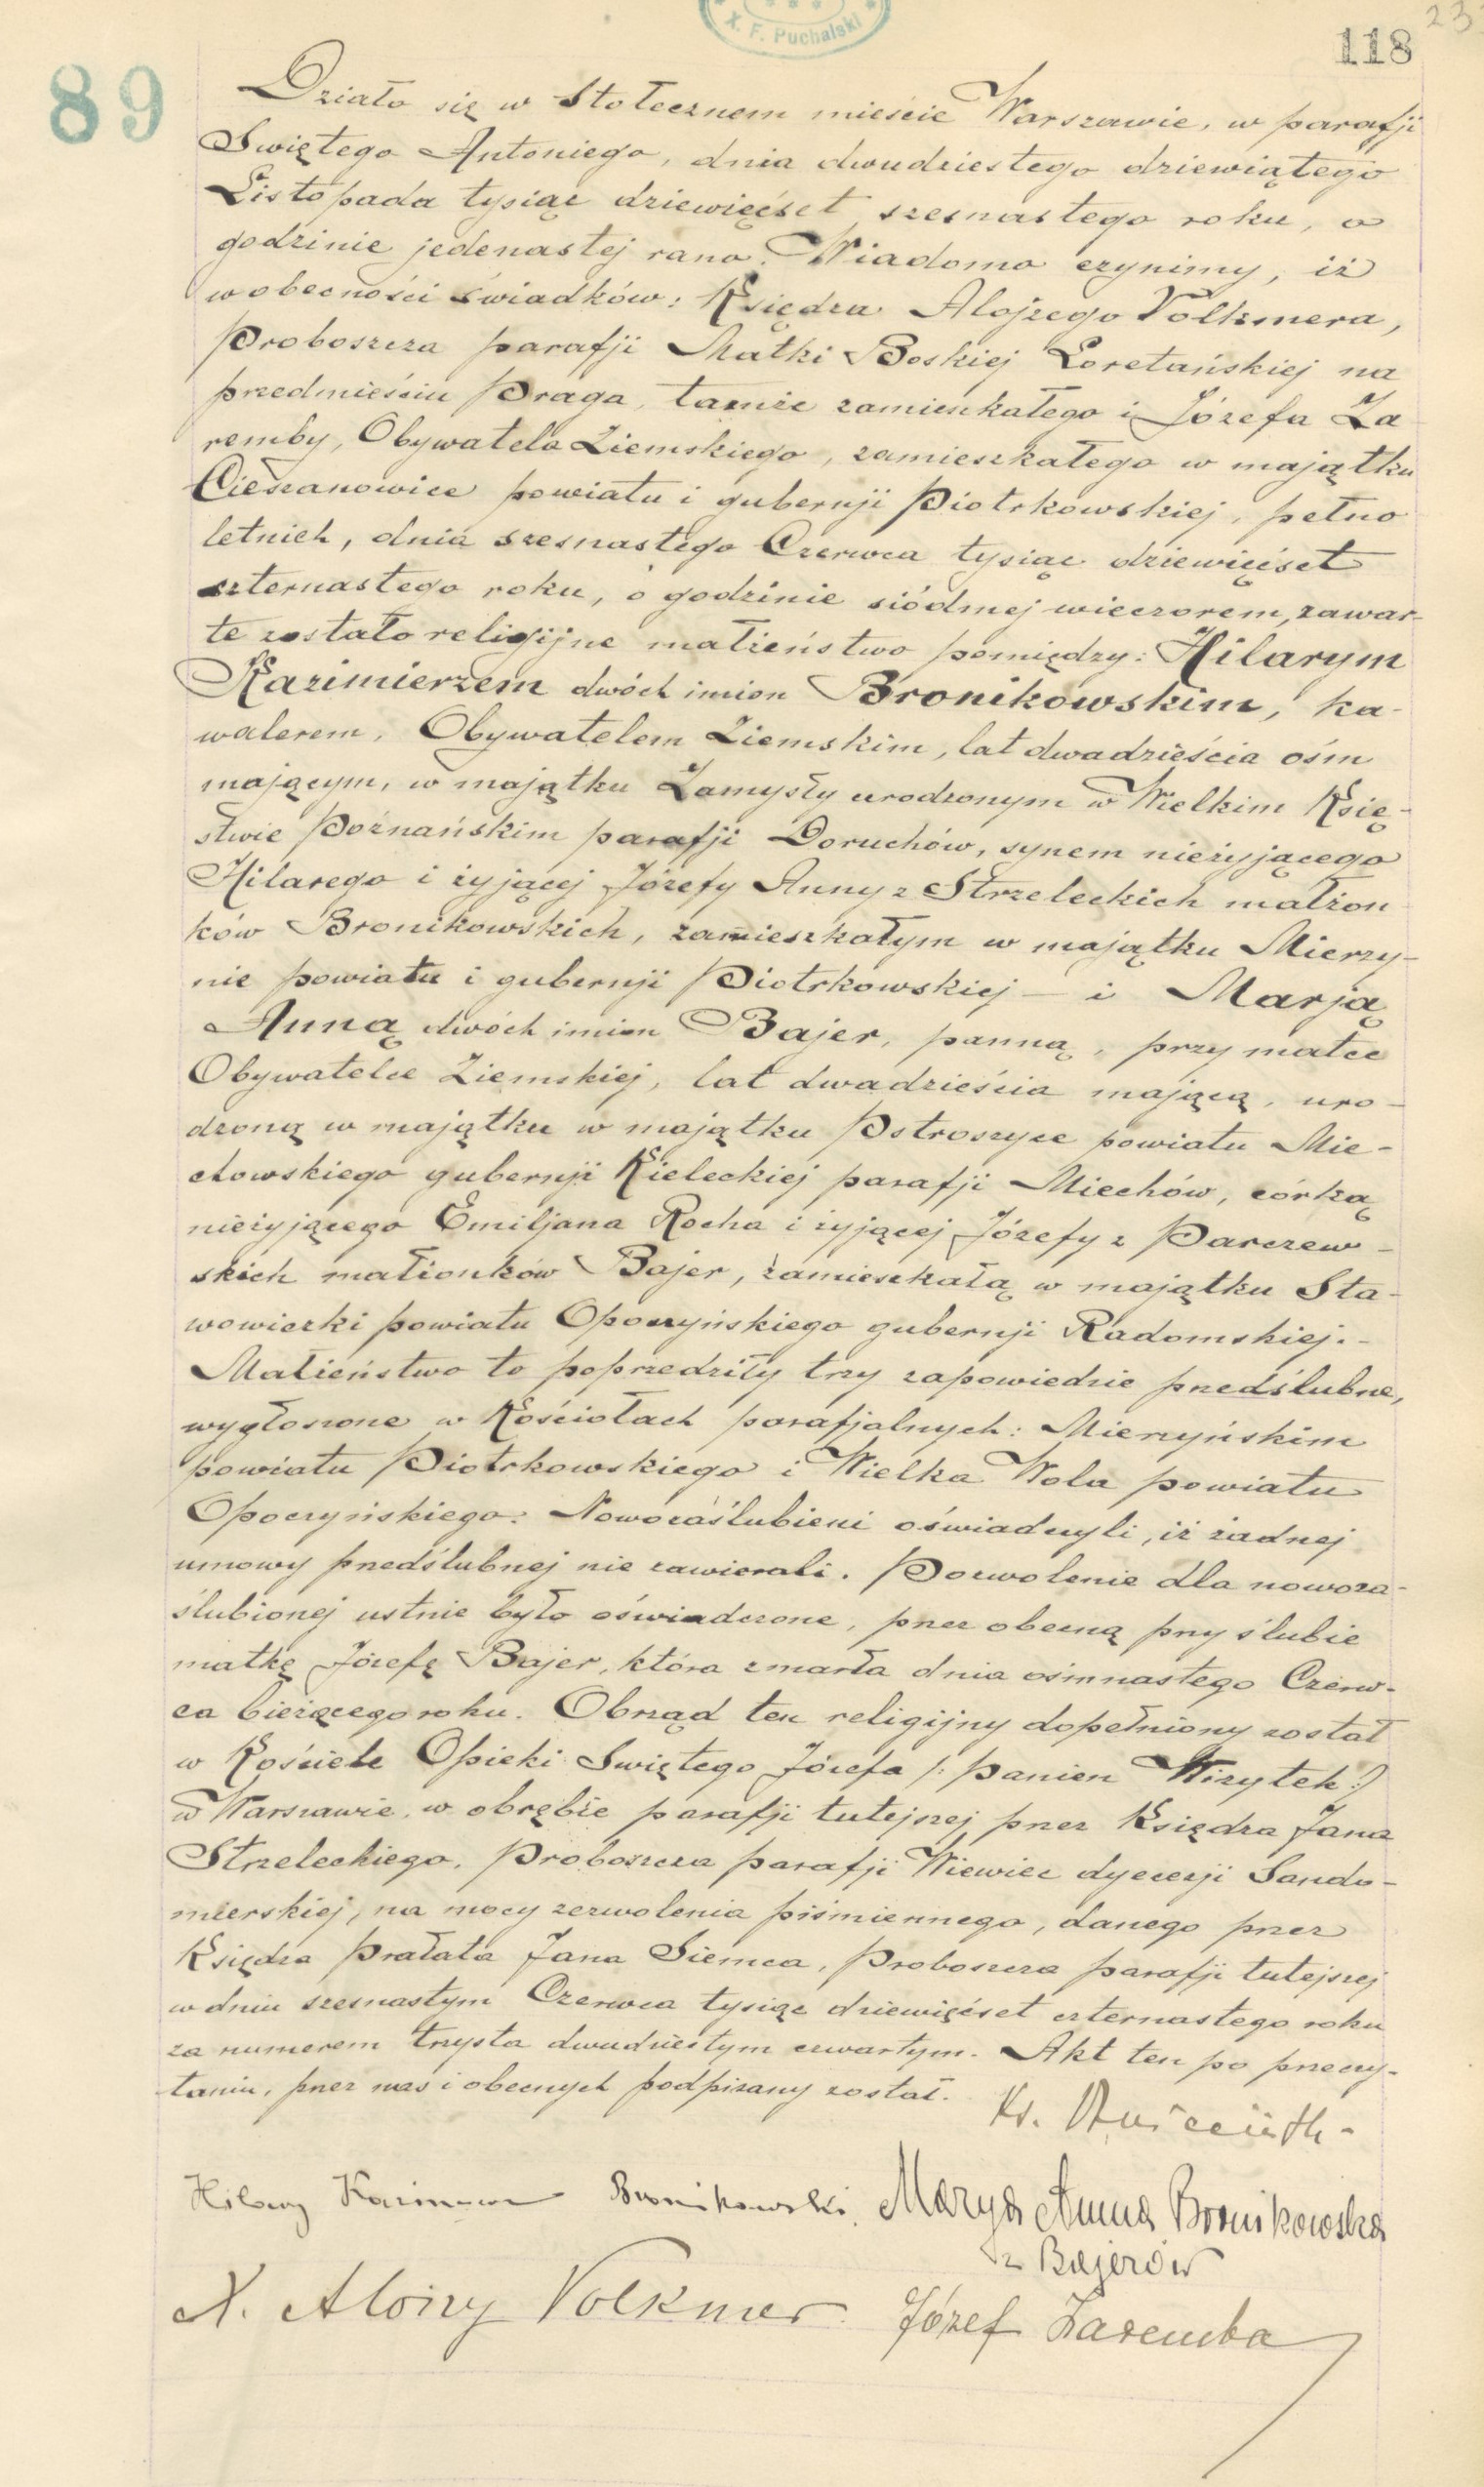 X. F. Puchalski
118
23
89
Działo się w Stołecznem mieście Warszawie, w parafji
Świętego Antoniego, dnia dwudziestego dziewiątego
Listopada tysiąc dziewięćset szesnastego roku, o
godzinie jedenastej rano. Wiadomo czynimy, iż
w obecności świadków: Księdza Alojzego Volkmera,
Proboszcza parafji Matki Boskiej Loretańskiej na
przedmieściu Praga, tamże zamieszkałego i Józefa Za
remby, Obywatela Ziemskiego, zamieszkałego w majątku
Cieszanowice powiatu i gubernji Piotrkowskiej, pełno
letnich, dnia szesnastego Czerwca tysiąc dziewięćset
czternastego roku, o godzinie siódmej wieczorem, zawar-
te zostało religijne małżeństwo pomiędzy: Hilarym
Kazimierzem dwóch imion Bronikowskim, ka-
walerem, Obywatelem Ziemskim, lat dwadzieścia ośm
mającym, w majątku Zamysły urodzonym w Wielkim Księ-
stwie Poznańskim parafji Doruchów, synem nieżyjącego
Hilarego i żyjącej Józefy Anny z Strzeleckich małżon
ków Bronikowskich, zamieszkałym w majątku Mierzy-
nie powiatu i gubernji Piotrkowskiej — i Marją
Anną dwóch imion Bajer, panną, przy matce
Obywatelce Ziemskiej, lat dwadzieścia mającą, uro-
dzoną w majątku w majątku Pstroszyce powiatu Mie-
chowskiego gubernji Kieleckiej parafji Miechów, córką
nieżyjącego Emiljana Rocha i żyjącej Józefy z Parczew-
skich małżonków Bajer, zamieszkałą w majątku Sta-
wowiczki powiatu Opoczyńskiego gubernji Radomskiej.-
Małżeństwo to poprzedziły trzy zapowiedzie przedślubne,
wygłoszone w Kościołach parafjalnych: Mierzyńskim
powiatu Piotrkowskiego i Wielka Wola powiatu
Opoczyńskiego. Nowozaślubieni oświadczyli, iż żadnej
umowy przedślubnej nie zawierali. Pozwolenie dla nowoza-
ślubionej ustnie było oświadczone, przez obecną przy ślubie
matkę Józefę Bajer, która zmarła dnia ośmnastego Czerw-
ca bieżącego roku. Obrząd ten religijny dopełniony został
w Kościele Opieki Świętego Józefa /: Panien Wizytek :/
w Warszawie, w obrębie parafji tutejszej przez Księdza Jana
Strzeleckiego, Proboszcza parafji Wiewiec dyecezji Sando-
mierskiej, na mocy zezwolenia piśmiennego, danego przez
Księdza Prałata Jana Siemca, Proboszcza parafji tutejszej
w dniu szesnastym Czerwca tysiąc dziewięćset czternastego roku
za numerem trzysta dwudziestym czwartym. Akt ten po przeczy-
taniu, przez nas i obecnych podpisany został.
Ks.
Hilary Kazimierz Bronikowski. Marya Anna Bronikowska
z Bajerów
X. Aloizy Volkmer. Józef Zaremba